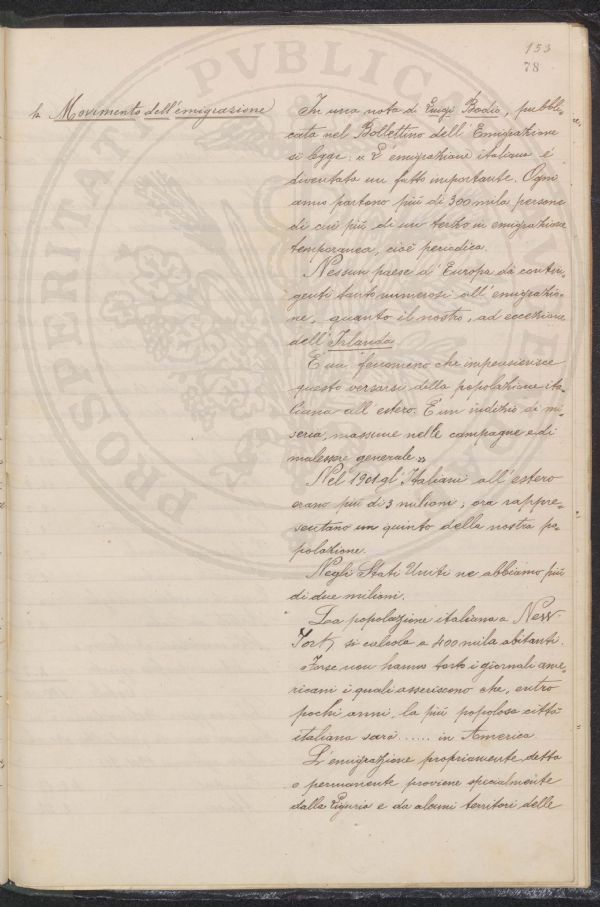 153
78
h Movimento dell'emigrazione
In una nota di Luigi Bodio, pubbli-
cata nel Bollettino dell'Emigrazione
si legge: « L'emigrazione italiana é
diventata un fatto importante. Ogni
anno partono piú di 300 mila persone
di cui piú di un terzo in emigrazione
temporanea, cioé periodica.
Nessun paese d'Europa dá contin-
genti tanto numerosi all'emigrazio-
ne, quanto il nostro, ad eccezione
dell'Irlanda.
É un fenomeno che impensierisce
questo versarsi della popolazione ita-
liana all'estero. É un indizio di mi-
seria, massime nelle campagne e di
malessere generale »
Nel 1901 gl'Italiani all'estero
erano piú di 3 milioni; ora rappre-
sentano un quinto della nostra po-
polazione.
Negli Stati Uniti ne abbiamo piú
di due milioni.
La popolazione italiana a New-
York si calcola a 400 mila abitanti.
Forse non hanno torto i giornali ame-
ricani i quali asseriscono che, entro
pochi anni, la piú popolosa cittá
italiana sará ..... in America.
L'emigrazione propriamente detta
o permanente proviene specialmente
dalla Liguria e da alcuni territori delle
PVBLICA
PROSPERITA